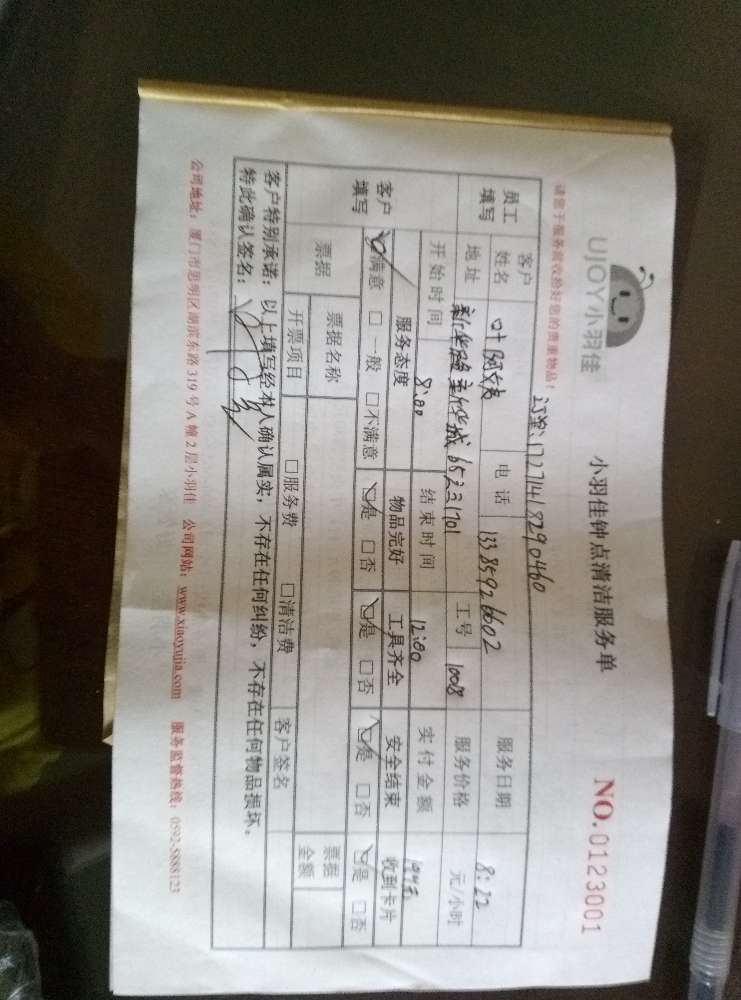 UJOY小羽佳
小羽佳钟点清洁服务单
NO.0123001
请您于服务前收拾好您的贵重物品!
订单:17271418290460
员工填写
客户姓名 叶 电话 13385926602 服务日期 8:22
地址 新华城 65231701 工号 1008 服务价格 元/小时
开始时间 8:00 结束时间 12:00 实付金额
客户填写
服务态度 物品完好 工具齐全 安全结束 收到卡片
☑满意 □一般 □不满意 ☑是 □否 ☑是 □否 ☑是 □否 ☑是 □否
票据 票据名称 票据金额
开票项目 □服务费 □清洁费 客户签名
客户特别承诺:以上填写经本人确认属实,不存在任何纠纷,不存在任何物品损坏。
特此确认签名:
公司地址:厦门市思明区湖滨东路319号A幢2层小羽佳 公司网站:www.xiaoyujia.com 服务监督热线:0592-5888123